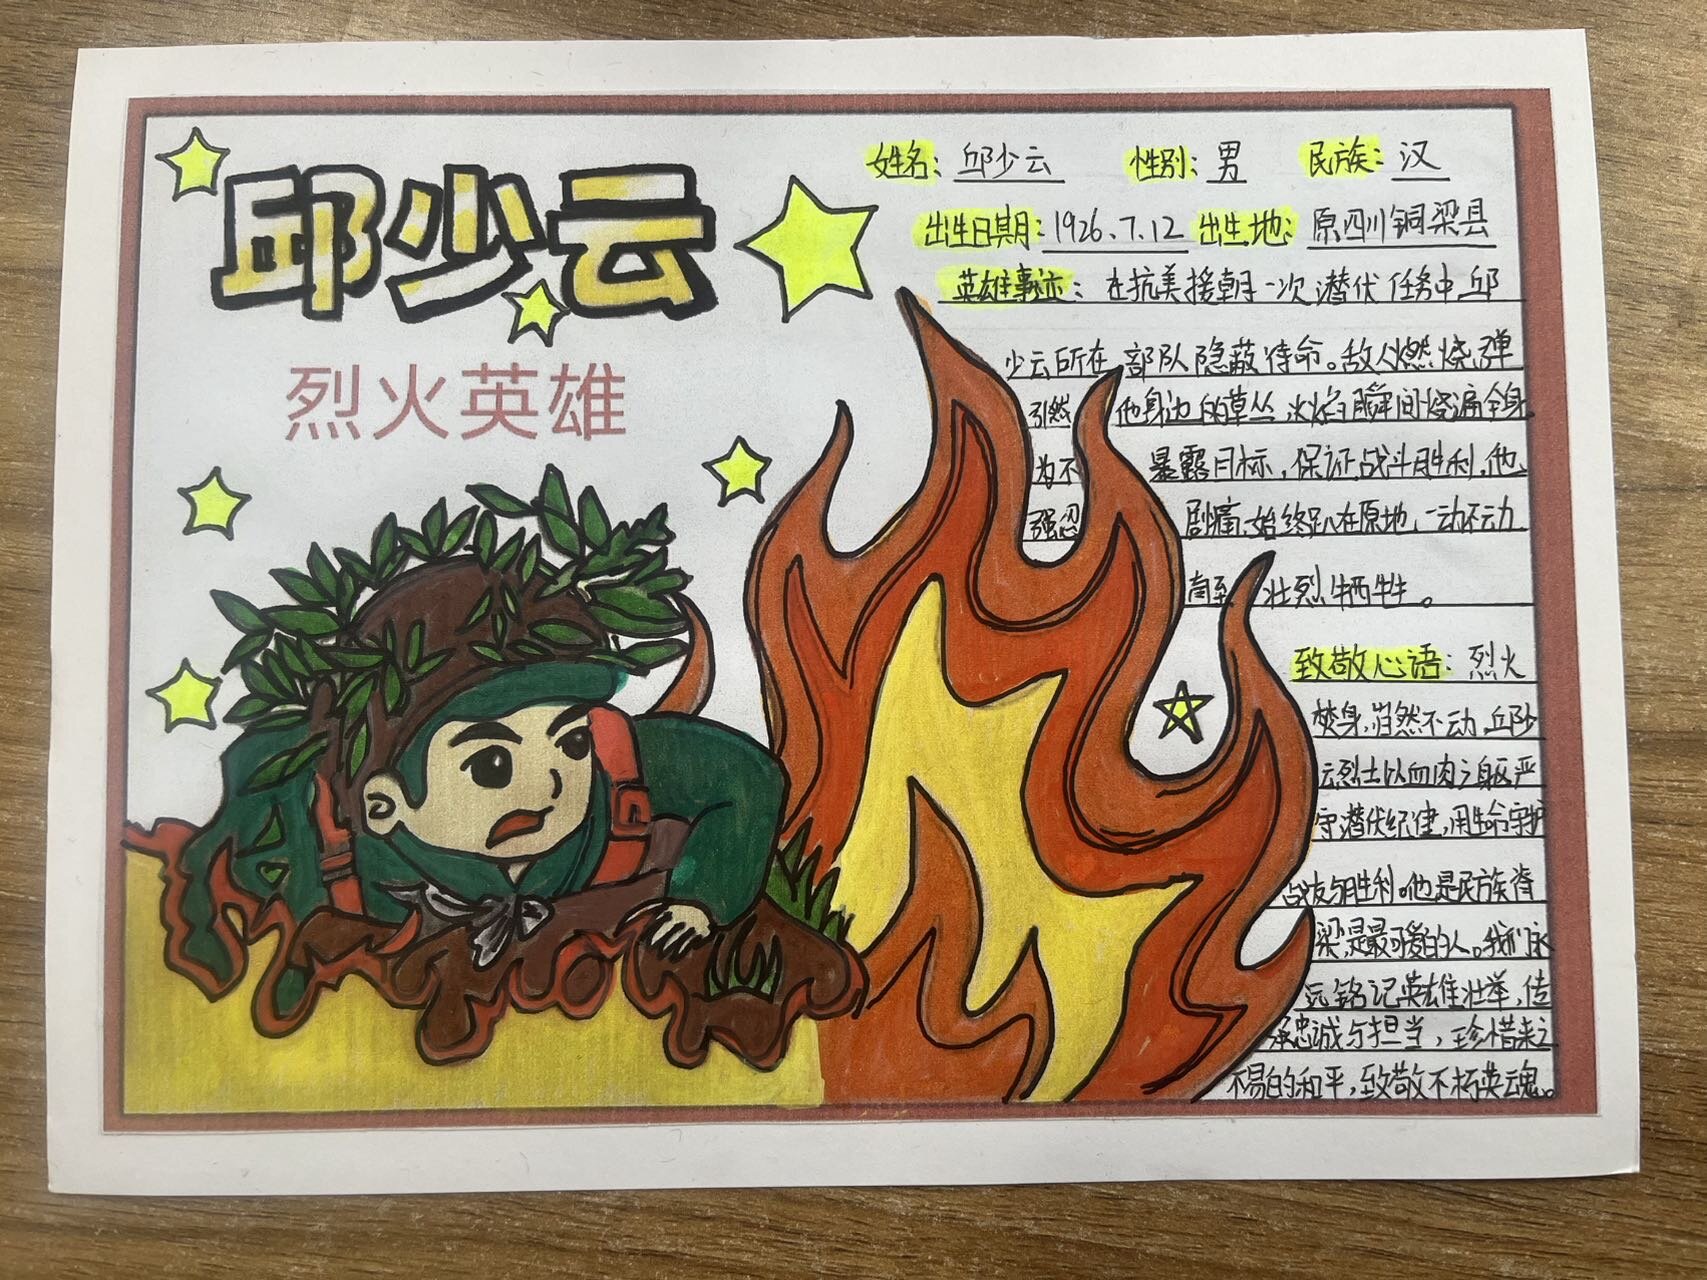 邱少云
烈火英雄
姓名：邱少云 性别：男 民族：汉
出生日期：1926.7.12 出生地：原四川铜梁县
英雄事迹：在抗美援朝一次潜伏任务中邱
少云所在部队隐蔽待命。敌人燃烧弹
引燃他身边的草丛，火焰瞬间烧遍全身。
为不暴露目标，保证战斗胜利，他
强忍剧痛，始终趴在原地，一动不动
直至壮烈牺牲。
致敬心语：烈火
焚身，岿然不动，邱少
云烈士以血肉之躯严
守潜伏纪律，用生命守护
战友与胜利。他是民族脊
梁，是最可爱的人。我们永
远铭记英雄壮举，传
承忠诚与担当，珍惜来之
不易的和平，致敬不朽英魂。